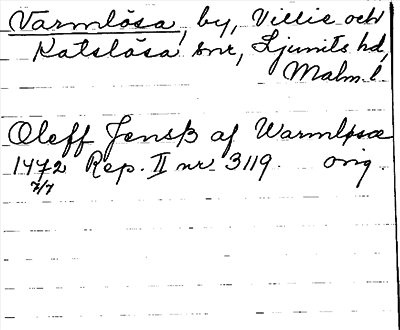 Varmlösa, by, Villie och
Katslösa snr, Ljunits hd,
Malm. l.
Oleff Jenss af Warmlpsæ
1472 Rep. II nr 3119. orig.
7/7